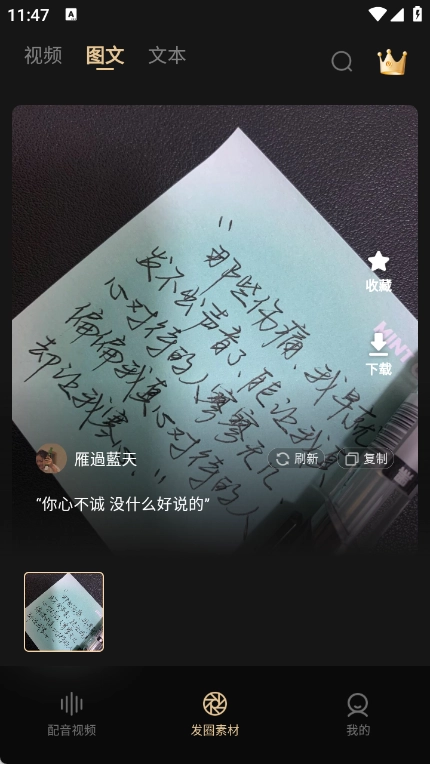 11:47
A
视频 图文 文本
"
那些伤痛，我早就
发不出声音了，能让我真
心对待的人寥寥无几
偏偏我真心对待的人
却让我寒
"
MINT
收藏
下载
雁過藍天
刷新 复制
“你心不诚 没什么好说的”
配音视频 发圈素材 我的